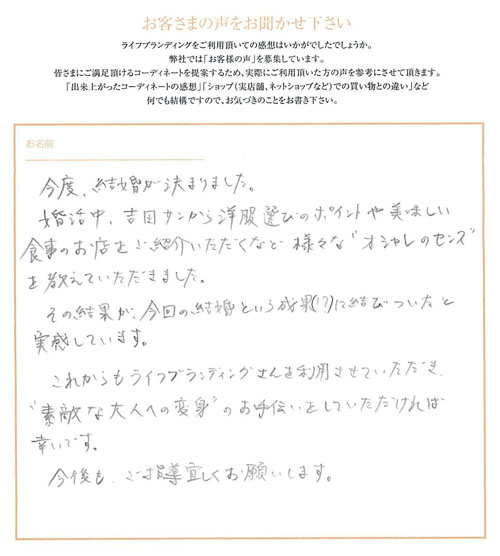 お客さまの声をお聞かせ下さい
ライフブランディングをご利用頂いての感想はいかがでしたでしょうか。
弊社では「お客様の声」を募集しています。
皆さまにご満足頂けるコーディネートを提案するため、実際にご利用頂いた方の声を参考にさせて頂きます。
「出来上がったコーディネートの感想」「ショップ(実店舗、ネットショップなど)での買い物との違い」など
何でも結構ですので、お気づきのことをお書き下さい。
お名前
今度、結婚が決まりました。
婚活中、吉田サンから洋服選びのポイントや美味しい
食事のお店をご紹介いただくなど様々な"オシャレのセンス"
を教えていただきました。
その結果が、今回の結婚という成果(!?)に結びついたと
実感しています。
これからもライフブランディングさんを利用させていただき、
"素敵な大人への変身"のお手伝いをしていただければ
幸いです。
今後も、ご指導宜しくお願いします。